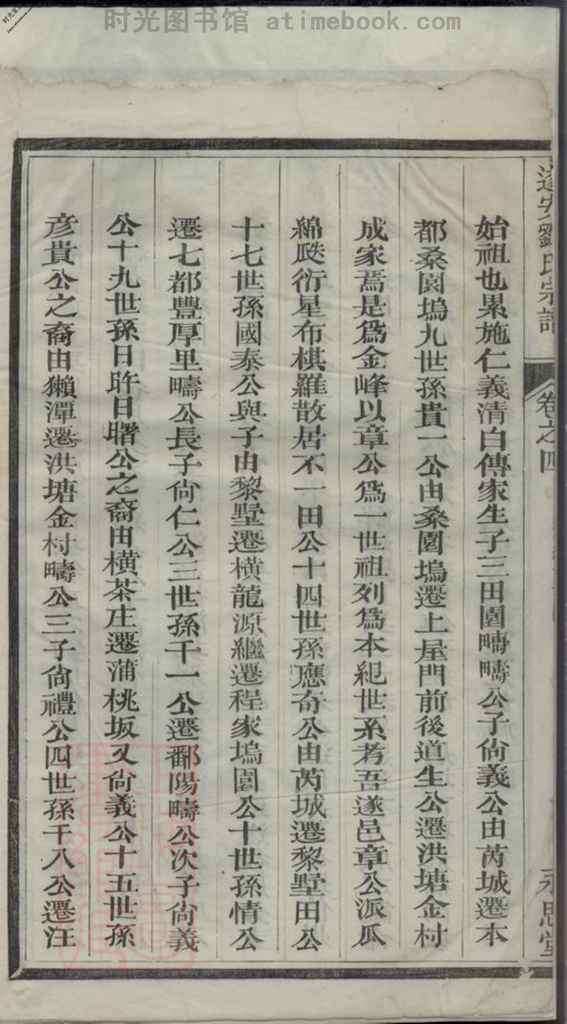 时光图书馆 atimebook.com
遂安劉氏宗譜
卷之四
永思堂
始祖也累施仁義清白傳家生子三田園疇疇公子尙義公由芮城遷本
都桑園塢九世孫貴一公由桑園塢遷上屋門前後道生公遷洪塘金村
成家焉是爲金峰以章公爲一世祖列爲本紀世系考吾遂邑章公派瓜
綿瓞衍星布棋羅散居不一田公十四世孫應奇公由芮城遷黎墅田公
十七世孫國泰公與子由黎墅遷橫龍源繼遷程家塢園公十世孫情公
遷七都豐厚里疇公長子尙仁公三世孫千一公遷鄱陽疇公次子尙義
公十九世孫日旿日㬢公之裔由橫茶庄遷蒲桃坂又尙義公十五世孫
彥貴公之裔由獺潭遷洪塘金村疇公三子尙禮公四世孫千八公遷汪